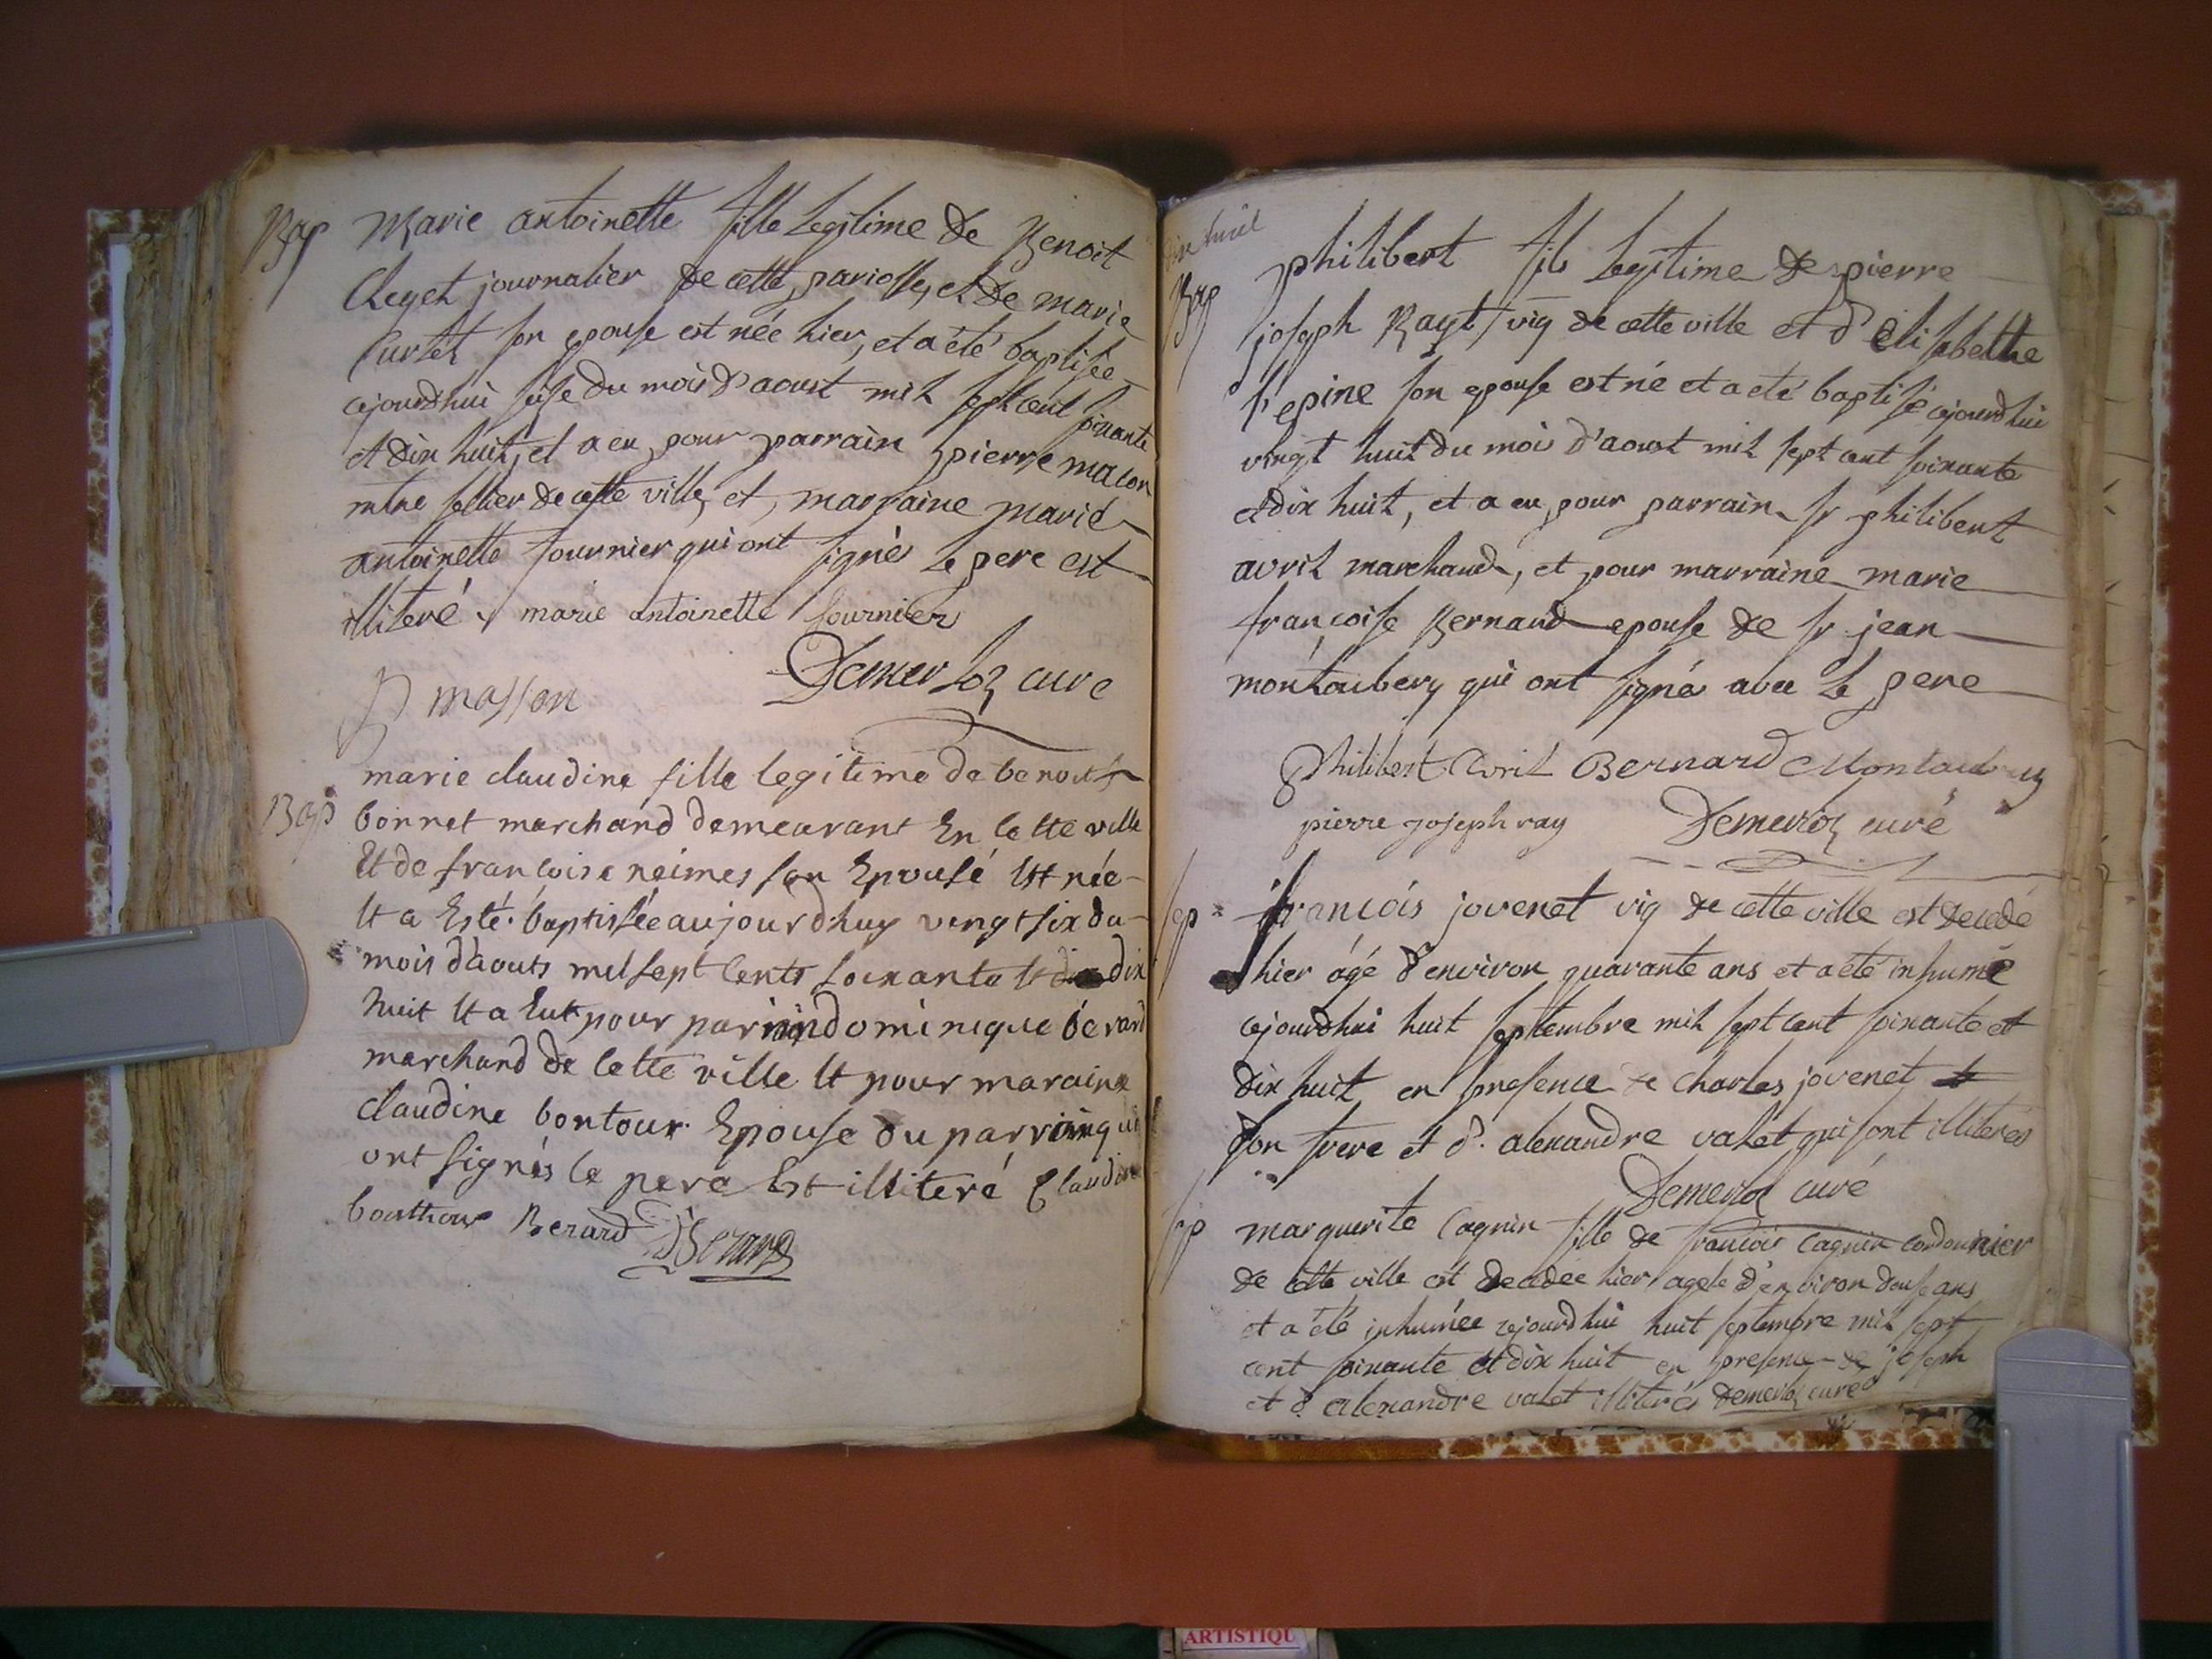 Bap Marie antoinette fille legitime de Benoit
Cleget journalier de cette paroisse, et de marie
Curtet son epouse est née hier, et a été baptisée
cejourdhui seise du mois d'aoust mil sept cent soixante
et dix huit, et a eu pour parrain pierre macon
mtre sellier de cette ville, et, marraine marie
antoinette fournier qui ont signés le pere est
illiteré marie antoinette fournier
P masson Demerloz curé
marie claudine fille legitime de benoit
Bap bonnet marchand demeurant En cette ville
Et de francoise neimes son Epousé Est née
Et a Esté baptissée aujourdhuy vengt six du
mois d'aouts mil sept Cents soixante Et dix
huit Et a Eut pour parrin dominique bérard
marchand de Cette ville Et pour maraine
claudine bontour Epouse du parrain qui
ont signés le pere Est illiteré Claudine
bouttour Berard DBerard
dix huit
Bap philibert fils legitime de pierre
joseph Rayt vig de cette ville et d'elisabethe
l'epine son epouse est né et a été baptisé cejourdhui
vingt huit du mois d'aoust mil sept cent soixante
et dix huit, et a eu pour parrain sr philibert
avril marchand, et pour marraine marie
françoise Bernard epouse de sr jean
montaubery qui ont signés avec le pere
Philibert Avril Bernard Montaubery
pierre joseph ray Demerloz curé
sep françois jovenet vig de cette ville est decedé
hier ágé d'environ quarante ans et a été inhumé
cejourdhui huit septembre mil sept cent soixante et
dix huit en presence de charles jovenet
son frere et d. alexandre valet qui sont illiterés
Demerloz curé
sep marguerite Cagnin fille de francois Cagnin cordonnier
de cette ville est decedée hier agée d'environ douse ans
et a été inhumée cejourdhui huit septembre mil sept
cent soixante et dix huit en presence de joseph
et d. alexandre valet illiterés Demerloz curé
ARTISTIQU